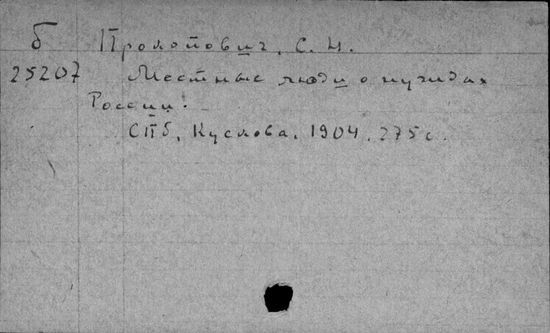 Б Прокопович, С. Н.
25207 Местные люди о нуждах
России.
СПб, Кускова, 1904. 275 с.